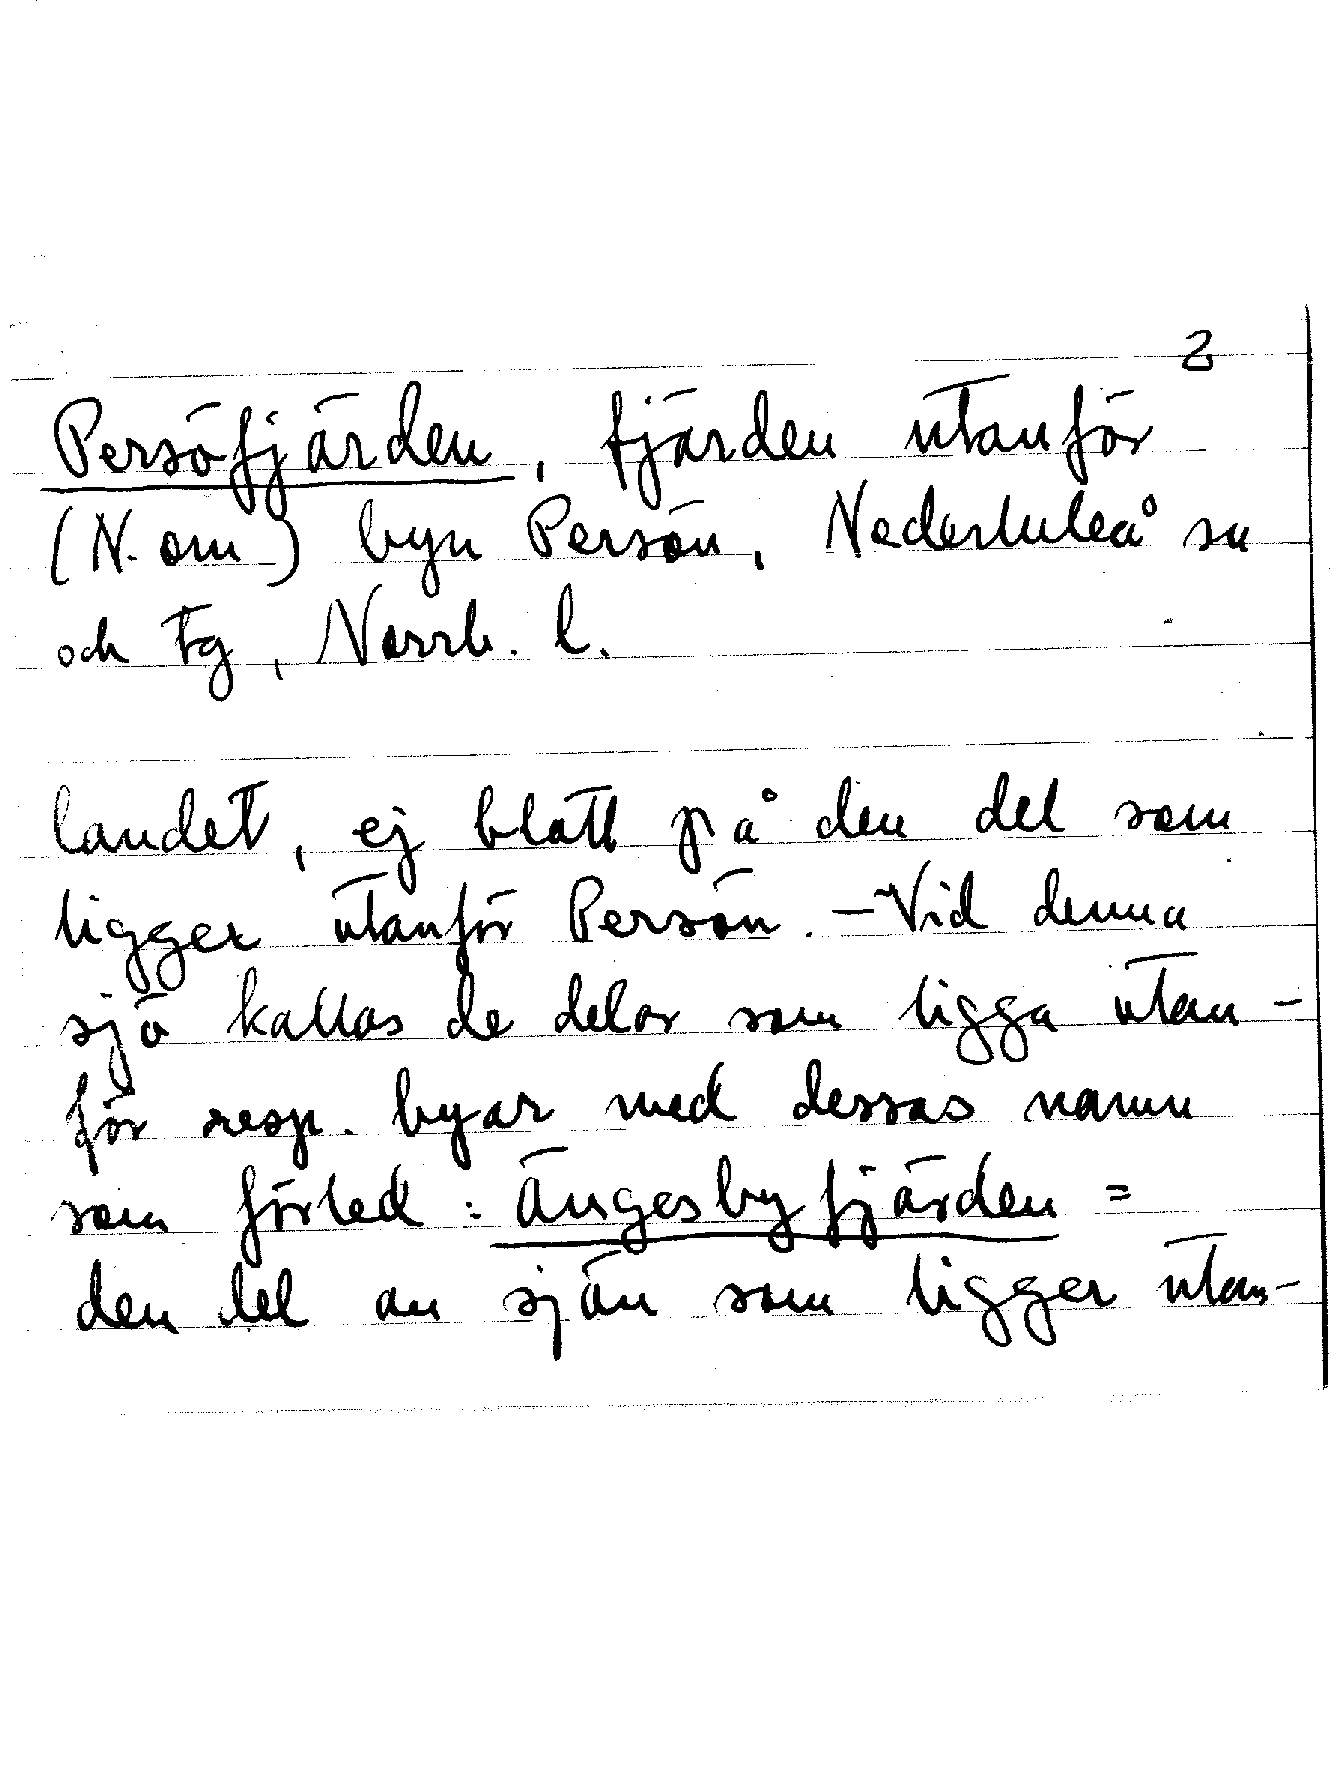 2
Persöfjärden, fjärden utanför
(N. om) byn Persön, Nederluleå sn
och tg, Norrb. l.
landet, ej blott på den del som
ligger utanför Persön. – Vid denna
sjö kallas de delar som ligga utan-
för resp. byar med dessas namn
som förled: Ängesbyfjärden =
den del av sjön som ligger utan-